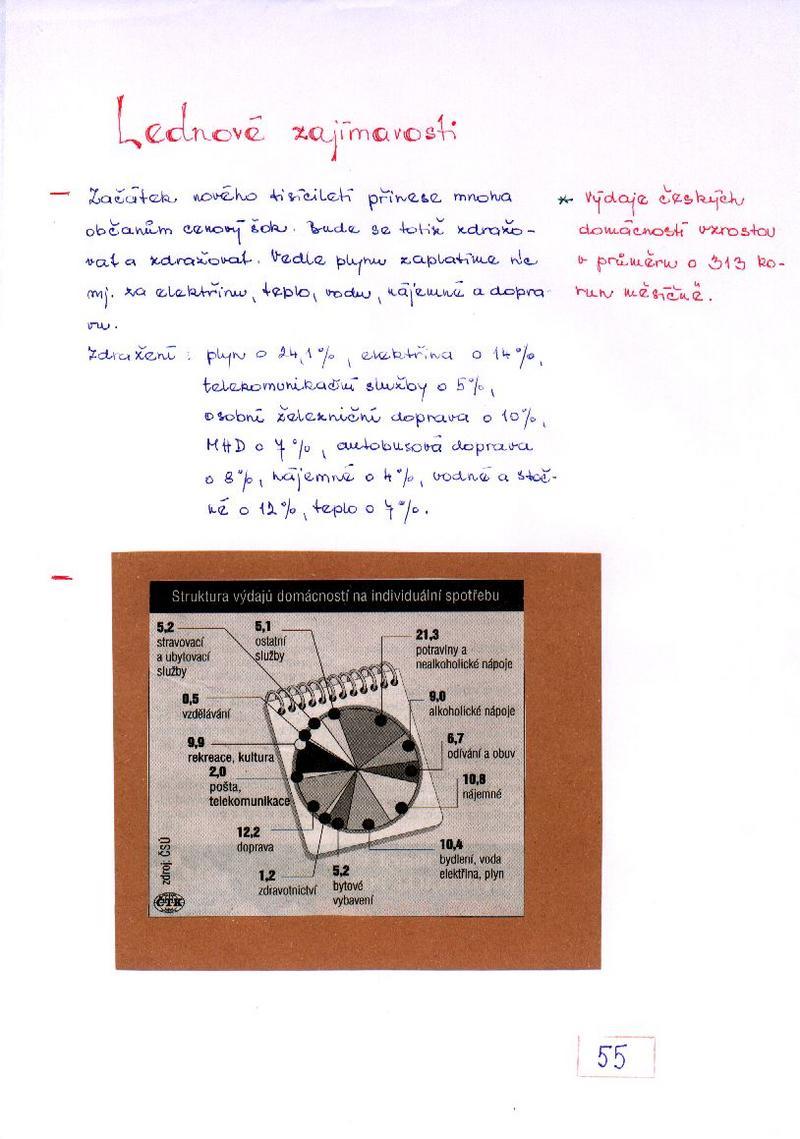 Lednové zajímavosti
— Začátek nového tisíciletí přinese mnoha
občanům cenový šok. Bude se totiž zdražo-
vat a zdražovat. Vedle plynu zaplatíme víc
mj. za elektřinu, teplo, vodu, nájemné a dopra-
vu.
Zdražení: plyn o 24,1 %, elektřina o 14 %,
telekomunikační služby o 5 %,
osobní železniční doprava o 10 %,
MHD o 7 %, autobusová doprava
o 8 %, nájemné o 4 %, vodné a stoč-
né o 12 %, teplo o 7 %.
* Výdaje českých
domácností vzrostou
v průměru o 313 ko-
run měsíčně.
—
Struktura výdajů domácností na individuální spotřebu
5,2
stravovací
a ubytovací
služby
5,1
ostatní
služby
21,3
potraviny a
nealkoholické nápoje
0,5
vzdělávání
9,0
alkoholické nápoje
9,9
rekreace, kultura
6,7
odívání a obuv
2,0
pošta,
telekomunikace
10,8
nájemné
12,2
doprava
10,4
bydlení, voda
elektřina, plyn
1,2
zdravotnictví
5,2
bytové
vybavení
zdroj: ČSÚ
ČTK
55